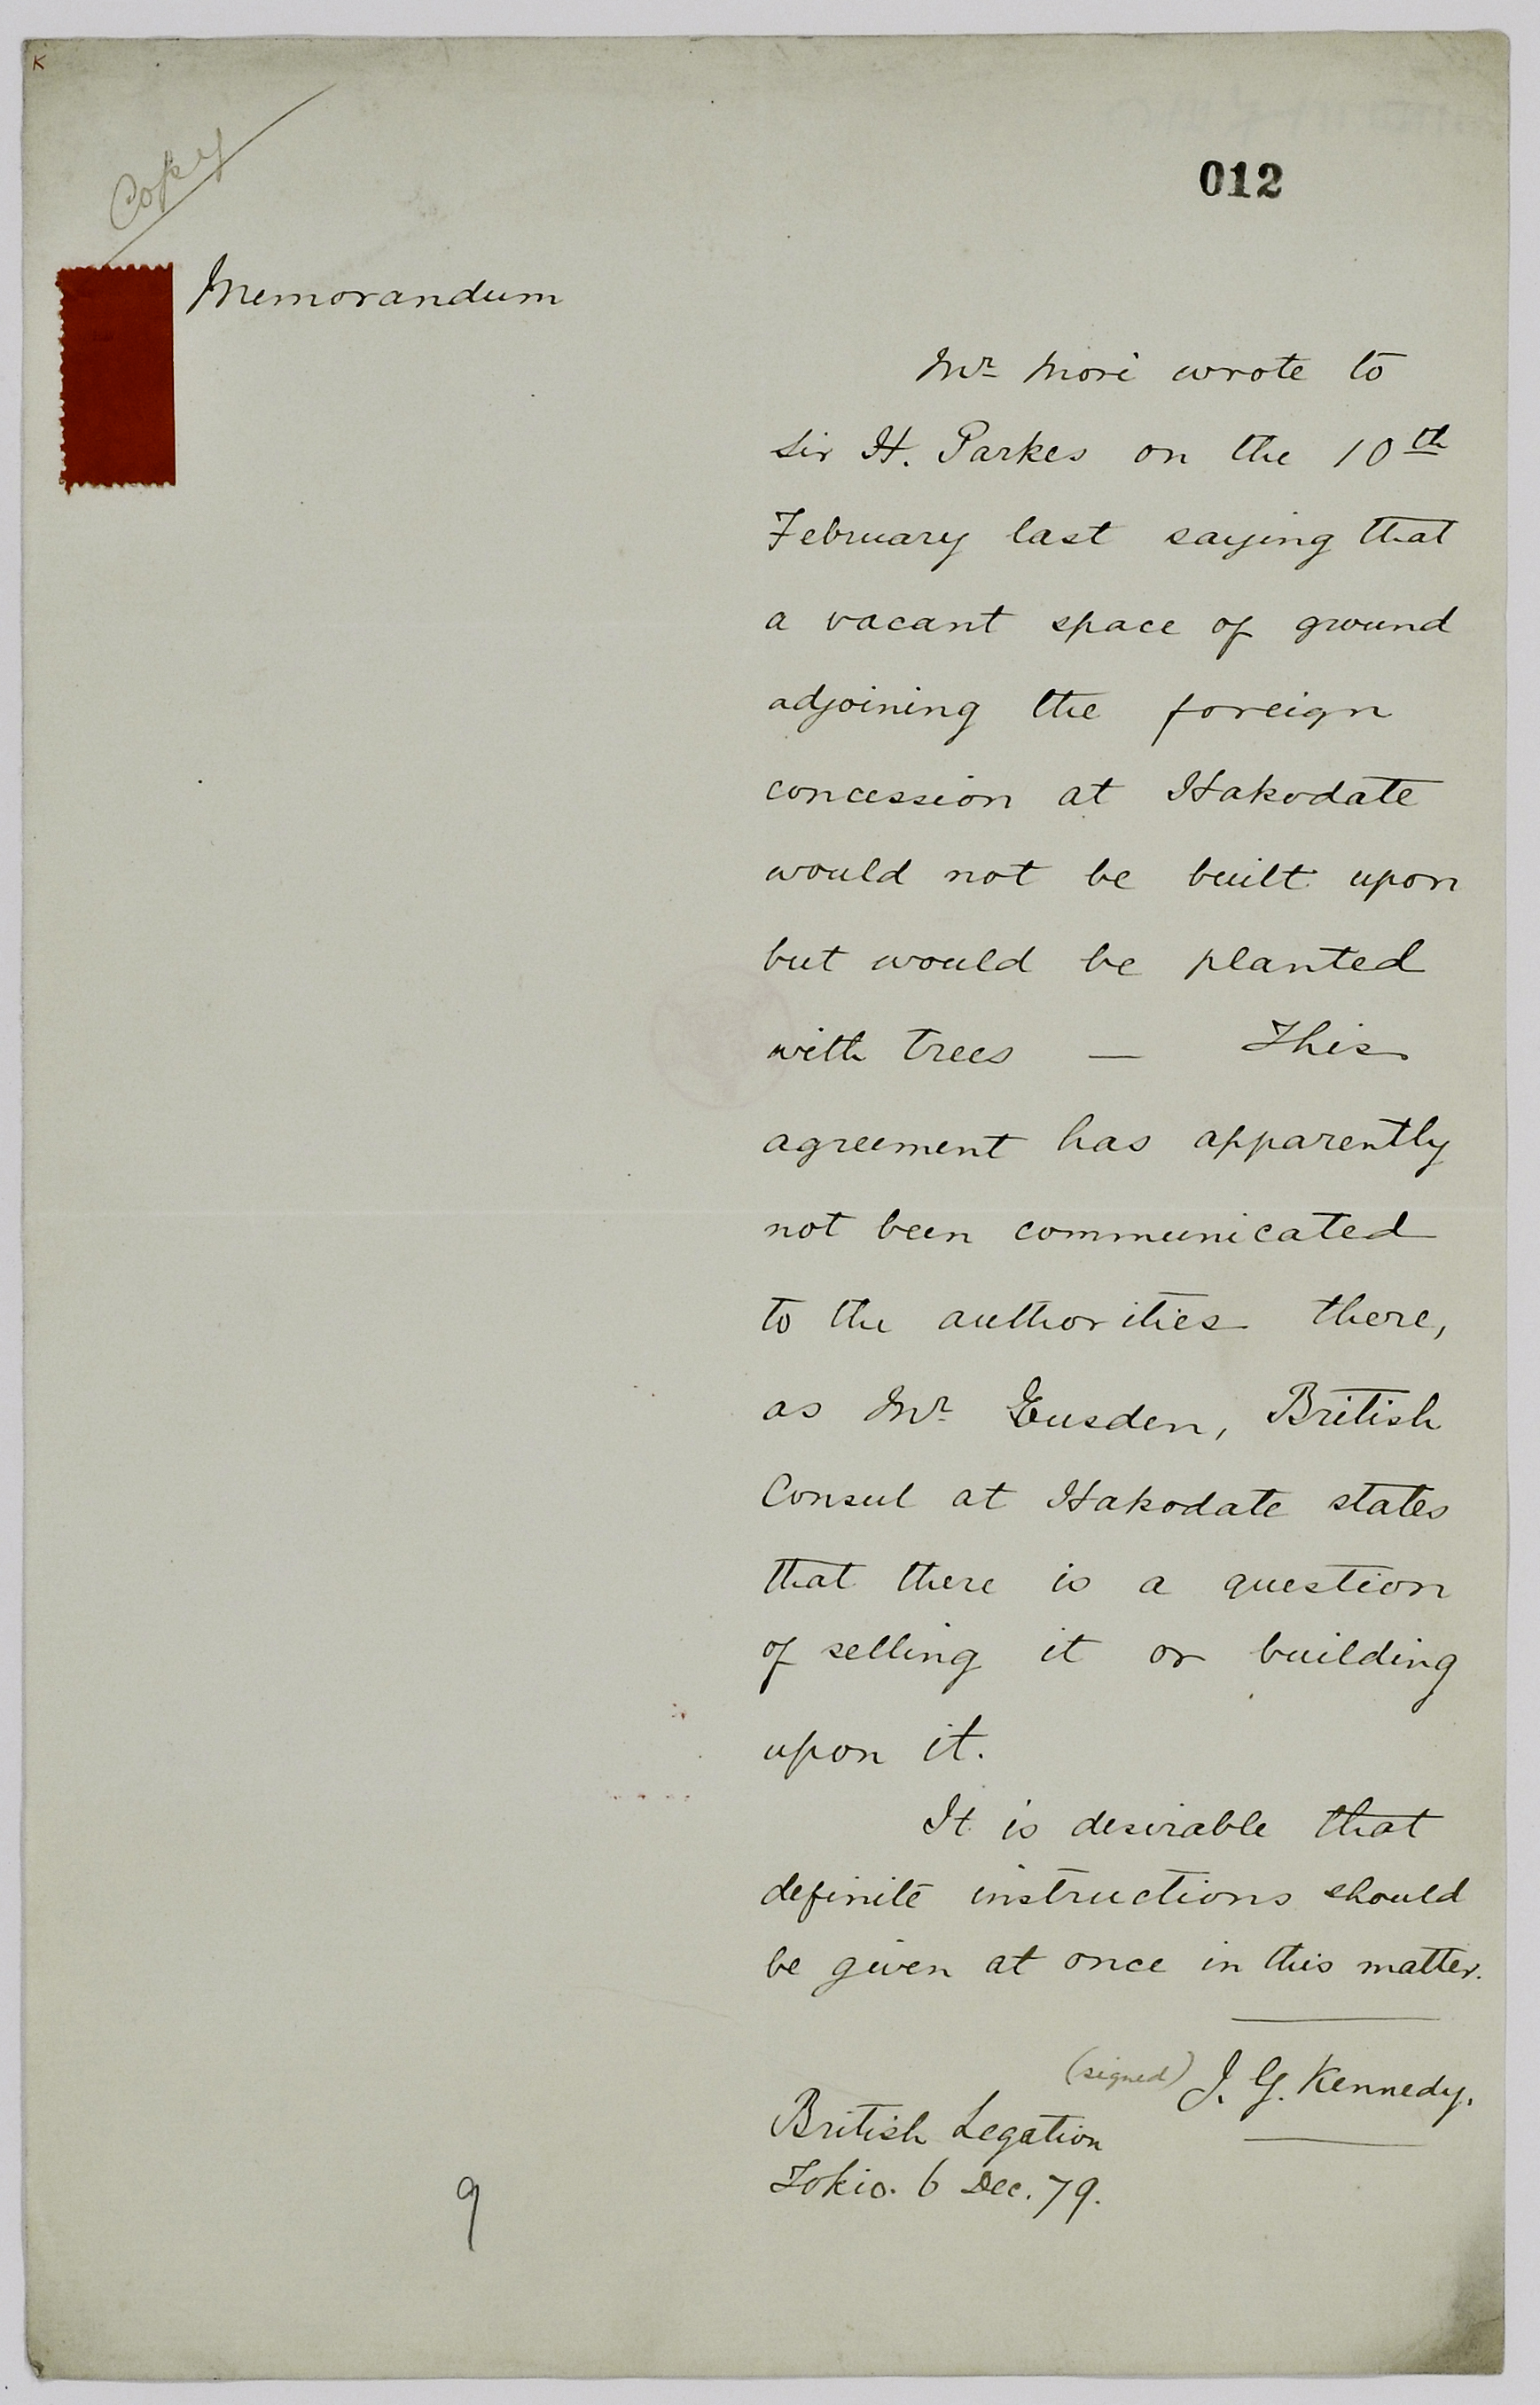 K
Copy
012
Memorandum
Mr Mori wrote to
Sir H. Parkes on the 10th
February last saying that
a vacant space of ground
adjoining the foreign
concession at Hakodate
would not be built upon
but would be planted
with trees — This
agreement has apparently
not been communicated
to the authorities there,
as Mr Eusden, British
Consul at Hakodate states
that there is a question
of selling it or building
upon it.
It is desirable that
definite instructions should
be given at once in this matter.
(signed) J. G. Kennedy.
British Legation
Tokio. 6 Dec. 79.
9